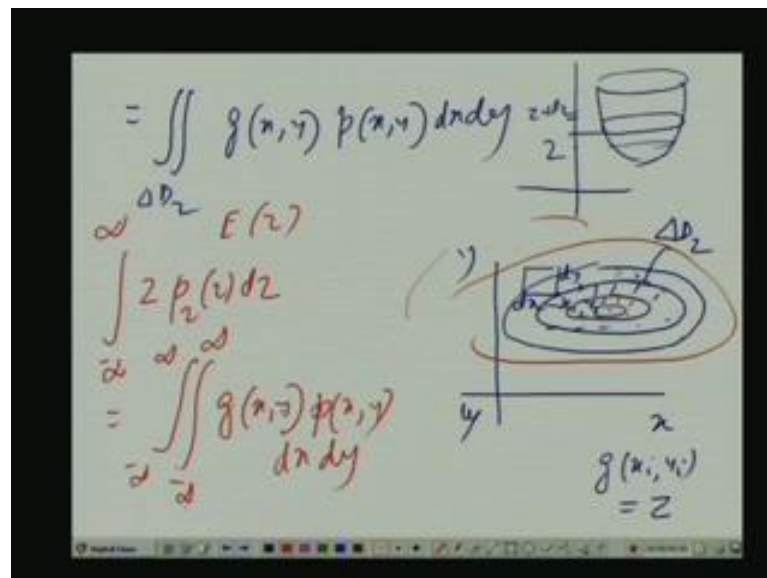 = ∬ g(x,y) p(x,y) dxdy
ΔD_z
E(z)
∫_{-∞}^{∞} z p_z(z) dz
= ∫_{-∞}^{∞} ∫_{-∞}^{∞} g(x,y) p(x,y)
dx dy
z+dz
z
ΔD_z
y
x
g(x_i, y_i)
= z